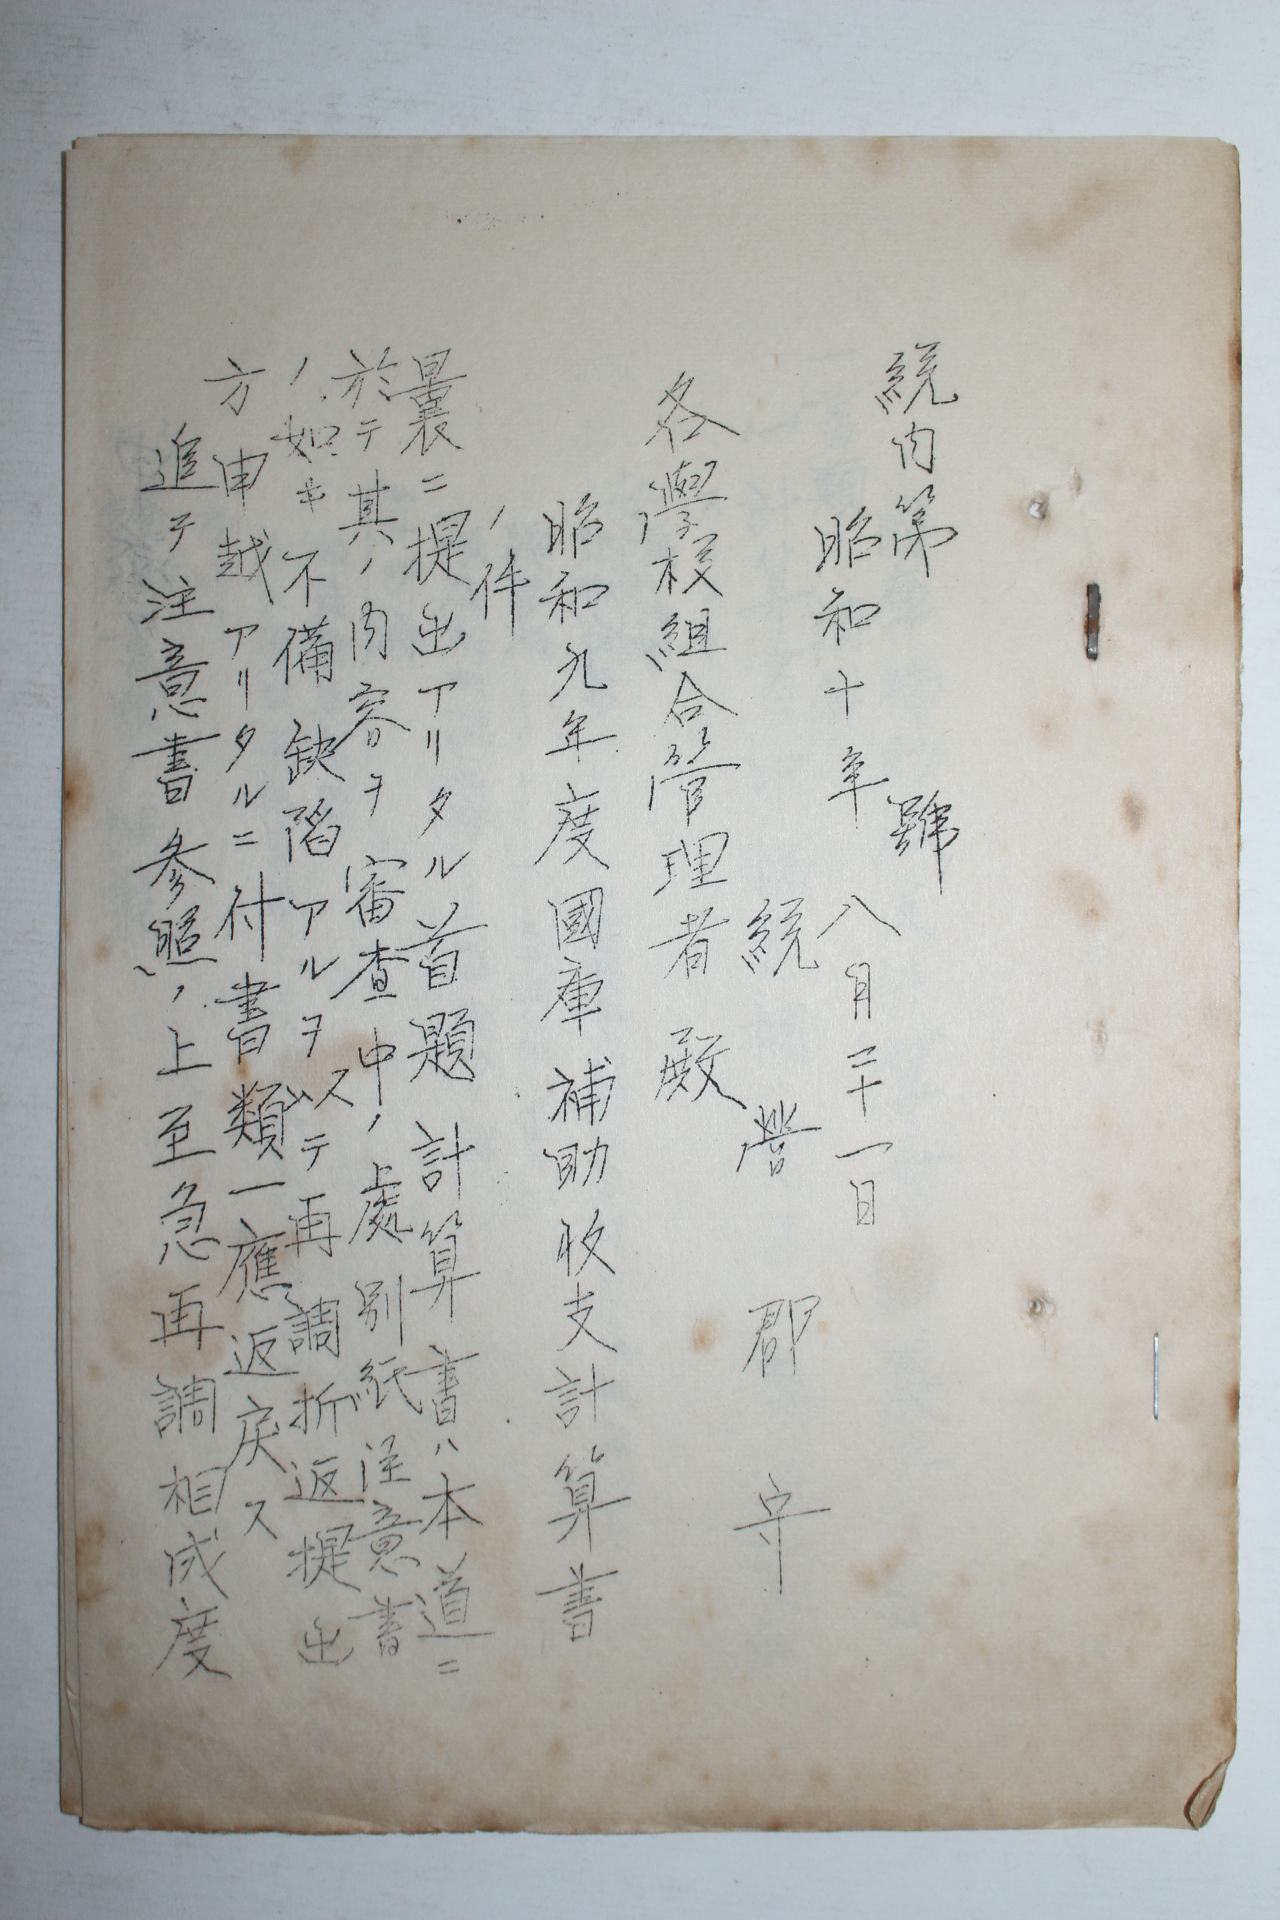 統内第　　　號
昭和十年八月二十一日
統營郡守
各學校組合管理者殿
昭和九年度國庫補助收支計算書
ノ件
曩ニ提出アリタル首題計算書ハ本道ニ
於テ其ノ内容ヲ審査中ノ處別紙注意書
ノ如キ不備缺陥アルヲ以テ再調折返提出
方申越アリタルニ付書類一應返戻ス
追テ注意書参照ノ上至急再調相成度